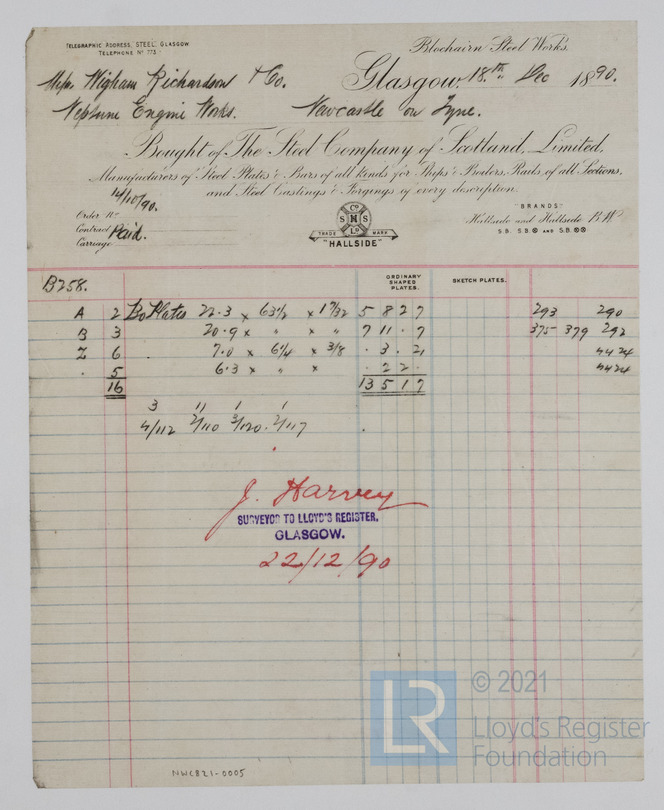 TELEGRAPHIC ADDRESS, STEEL, GLASGOW.
TELEPHONE No 773
Blochairn Steel Works.
Glasgow, 18th Dec 1890.
Messrs Wigham Richardson & Co.
Neptune Engine Works. Newcastle on Tyne.
Bought of The Steel Company of Scotland, Limited,
Manufacturers of Steel Plates & Bars of all kinds for Ships & Boilers, Rails of all Sections,
and Steel Castings & Forgings of every description.
14/10/90.
Order No
Contract
Carriage Paid.
Co
S H S
Ld
TRADE MARK
"HALLSIDE"
"BRANDS"
Hallside and Hallside B.W.
S.B. S.B.⊗ AND S.B.⊗⊗
B258.
ORDINARY SHAPED PLATES.
SKETCH PLATES.
A 2 Bo Plates 22.3 x 63½ x 1 9/32 5 8 2 7 293 290
B 3 20.9 x " x " 7 11 . 7 375 379 292
Z 6 . 7.0 x 6¼ x 3/8 . 3 . 21 4424
. 5 6.3 x " x . 2 2 . 4424
16 13 5 1 7
3 11 1 1
4/112 2/110 3/120. 2/117
J. Harvey
SURVEYOR TO LLOYD'S REGISTER,
GLASGOW.
22/12/90
LR
© 2021
Lloyd's Register
Foundation
NWCB21-0005